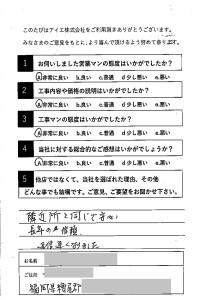 このたびはアイエ株式会社をご利用頂きありがとうございます。
みなさまのご意見をもとに、より喜んで頂けるよう努めて参ります。
1 お伺いしました営業マンの態度はいかがでしたか?
A非常に良い b.良い c.普通 d.少し悪い e.悪い
2 工事内容や価格の説明はいかがでしたか?
A非常に良い b.良い c.普通 d.少し悪い e.悪い
3 工事マンの態度はいかがでしたか?
A非常に良い b.良い c.普通 d.少し悪い e.悪い
4 当社に対する総合的なご感想はいかがでしょうか?
A非常に良い b.良い c.普通 d.少し悪い e.悪い
5 他店ではなくて、当社を選ばれた理由、その他
どんな事でも結構です。ご意見、ご要望をお聞かせ下さい。
隣近所と同じで安い
長年の信頼
早く
お名前
ご住所
福岡県糟屋郡